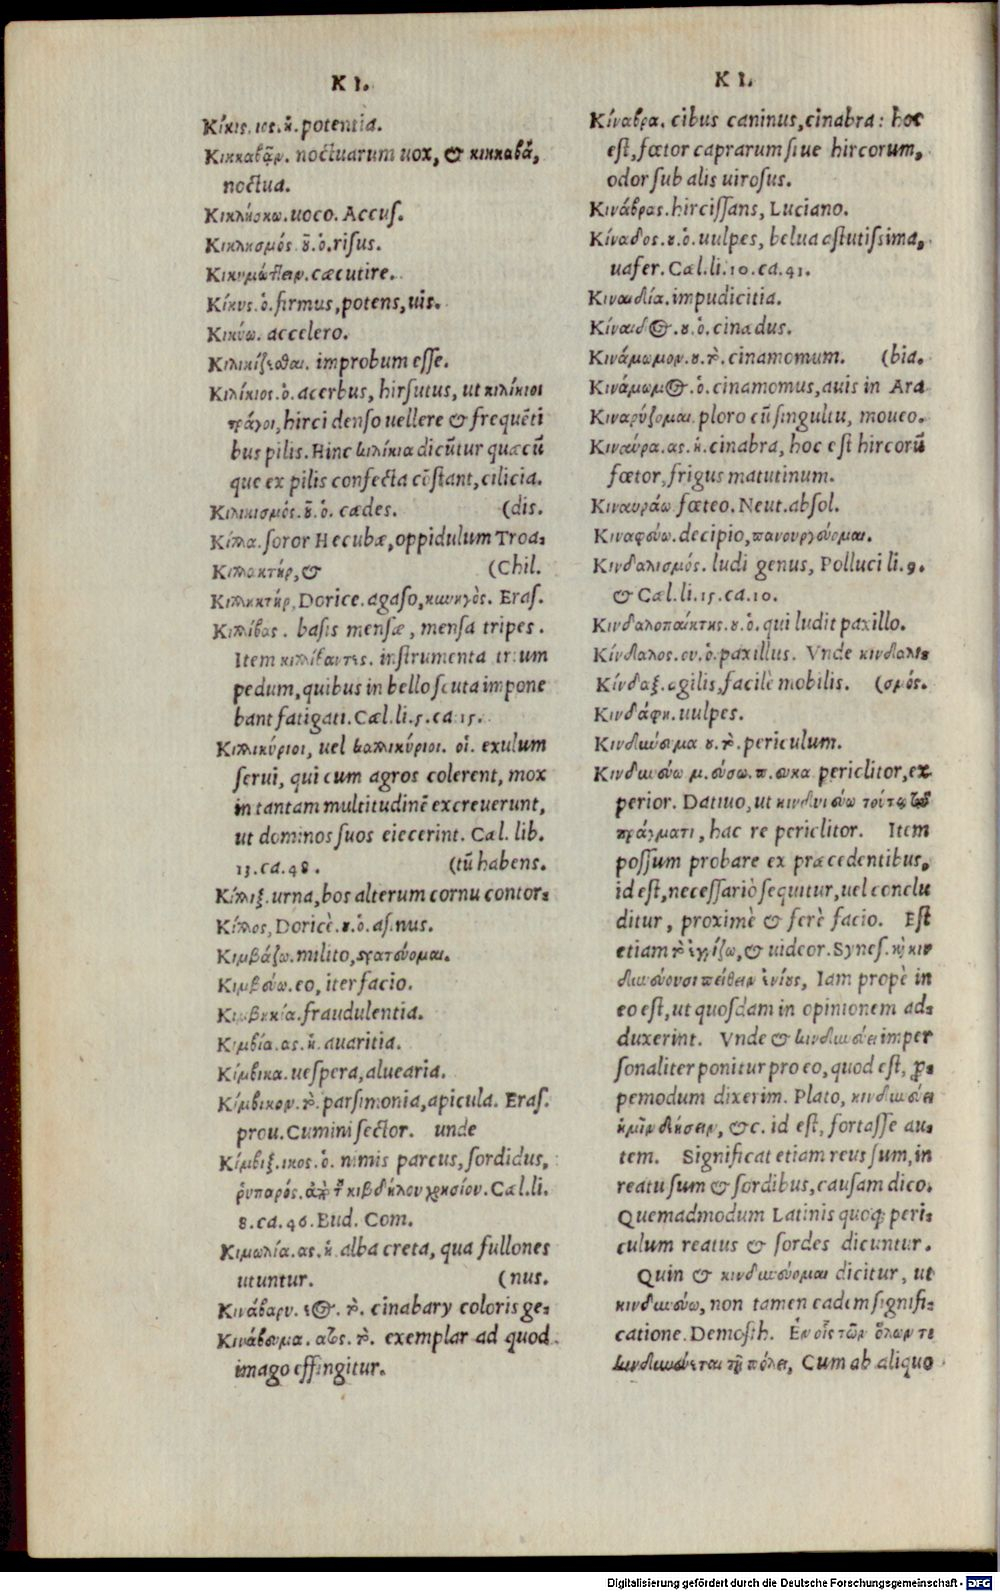 K I.
Κίκις. ιος. ἡ. potentia.
Κικκαβᾷν. noctuarum uox, & κικκαβᾶ,
noctua.
Κικλήσκω. uoco. Accuſ.
Κικλισμός. οῦ. ὁ. riſus.
Κικυμώττειν. cæcutire.
Κίκυς. ὁ. firmus, potens, uis.
Κικύω. accelero.
Κιλικίζεσθαι. improbum eſſe.
Κιλίκιος. ὁ. acerbus, hirſutus, ut κιλίκιοι
τράγοι, hirci denſo uellere & frequēti
bus pilis. Hinc κιλίκια dicūtur quæcū
que ex pilis confecta cōſtant, cilicia.
Κιλικισμός. οῦ. ὁ. cædes. (dis.
Κίλλα. ſoror Hecubæ, oppidulum Troa-
Κιλλακτήρ, & (Chil.
Κιλλικτήρ, Dorice. agaſo, κιωνηγός. Eraſ.
Κιλλίβας. baſis menſæ, menſa tripes.
Item κιλλίβαντες. inſtrumenta trium
pedum, quibus in bello ſcuta impone
bant fatigati. Cæl. li. 5. ca. 15.
Κιλλικύριοι, uel καλλικύριοι. οἱ. exulum
ſerui, qui cum agros colerent, mox
in tantam multitudinē excreuerunt,
ut dominos ſuos eiecerint. Cæl. lib.
13. ca. 48. (tū habens.
Κίλλιξ. urna, bos alterum cornu contor-
Κίλλος, Doricè. ου. ὁ. aſinus.
Κιμβάζω. milito, στρατεύομαι.
Κιμβεύω. eo, iter facio.
Κιμβικία. fraudulentia.
Κιμβία. ας. ἡ. auaritia.
Κίμβικα. ueſpera, aluearia.
Κίμβικον. τὸ. parſimonia, apicula. Eraſ.
prou. Cumini ſector. unde
Κίμβιξ. ικος. ὁ. nimis parcus, ſordidus,
ῥυπαρός. ἀπὸ τοῦ κιβδήλου χρησίου. Cæl. li.
8. ca. 46. Eud. Com.
Κιμωλία. ας. ἡ. alba creta, qua fullones
utuntur. (nus.
Κινάβαρυ. εος. τὸ. cinabary coloris ge-
Κινάβευμα. ατος. τὸ. exemplar ad quod
imago effingitur.
K I.
Κίναβρα. cibus caninus, cinabra: hoc
eſt, fœtor caprarum ſiue hircorum,
odor ſub alis uiroſus.
Κινάβρας. hirciſſans, Luciano.
Κίναδος. ου. ὁ. uulpes, belua aſtutiſsima,
uafer. Cæl. li. 10. ca. 41.
Κιναιδία. impudicitia.
Κίναιδος. ου. ὁ. cinædus.
Κινάμωμον. ου. τὸ. cinamomum. (bia.
Κινάμωμος. ὁ. cinamomus, auis in Ara
Κιναρύζομαι. ploro cū ſingultu, moueo.
Κιναύρα. ας. ἡ. cinabra, hoc eſt hircorū
fœtor, frigus matutinum.
Κιναυράω. fœteo. Neut. abſol.
Κιναφεύω. decipio, πανουργεύομαι.
Κινδαλισμός. ludi genus, Polluci li. 9.
& Cæl. li. 15. ca. 10.
Κινδαλοπαίκτης. ου. ὁ. qui ludit paxillo.
Κίνδαλος. ου. ὁ. paxillus. Vnde κινδαλι
Κίνδαξ. agilis, facilè mobilis. (σμός.
Κινδάφη. uulpes.
Κινδιύευμα. ου. τὸ. periculum.
Κινδυνεύω. μ. εύσω. π. ευκα. periclitor, ex
perior. Datiuo, ut κινδυνεύω τούτῳ τῷ
πράγματι, hac re periclitor. Item
poſſum probare ex præcedentibus,
id eſt, neceſſariò ſequitur, uel conclu
ditur, proximè & ferè facio. Eſt
etiam τὸ ἐγγίζω, & uideor. Syneſ. καὶ κιν
δυνεύουσι πείθειν ἐνίους, Iam propè in
eo eſt, ut quoſdam in opinionem ad-
duxerint. Vnde & κινδυνεύει imper
ſonaliter ponitur pro eo, quod eſt, pro-
pemodum dixerim. Plato, κινδυνεύει
ἡμῖν δεήσειν, &c. id eſt, fortaſſe au-
tem. Significat etiam reus ſum, in
reatu ſum & ſordibus, cauſam dico.
Quemadmodum Latinis quoq; peri-
culum reatus & ſordes dicuntur.
Quin & κινδυνεύομαι dicitur, ut
κινδυνεύω, non tamen eadem ſignifi-
catione. Demoſth. Ἐν οἷς τῶν ὅλων τε
κινδυνεύεται τῇ πόλει, Cum ab aliquo
Digitalisierung gefördert durch die Deutsche Forschungsgemeinschaft - DFG